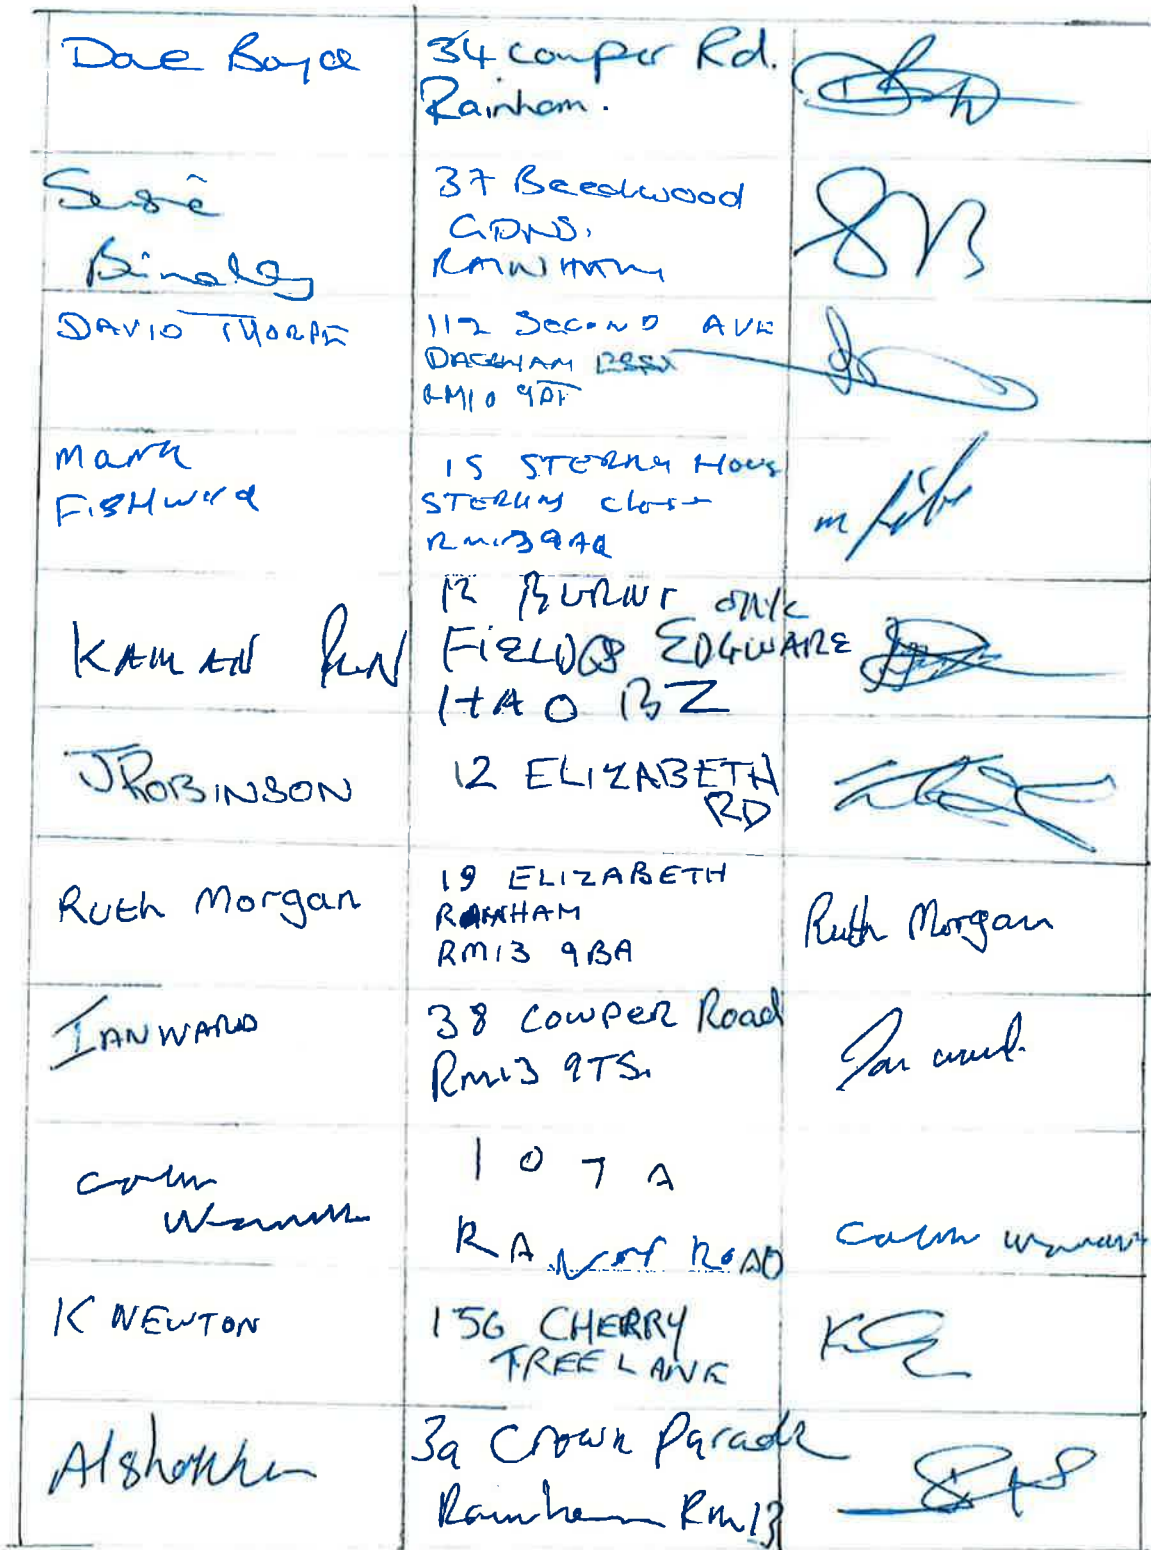 Dave Boyce
34 Cowper Rd.
Rainham.
Susie
37 Beechwood
GDNS,
RAINHAM
SB
DAVID THORPE
112 SECOND AVE
DAGENHAM
RM10 9DT
MARK
FISHWICK
15 STERLING HOUS
STERLING Close
RM13 9AQ
12 BURNT OAK
FIELDS EDGWARE
HA0 BZ
J ROBINSON
12 ELIZABETH
RD
Ruth Morgan
19 ELIZABETH
RAINHAM
RM13 9BA
Ruth Morgan
IAN WARD
38 COWPER Road
RM13 9TS.
Ian Ward.
Colin
107A
ROAD
Colin
K NEWTON
156 CHERRY
TREE LANE
3a Crown Parade
Rainham RM13